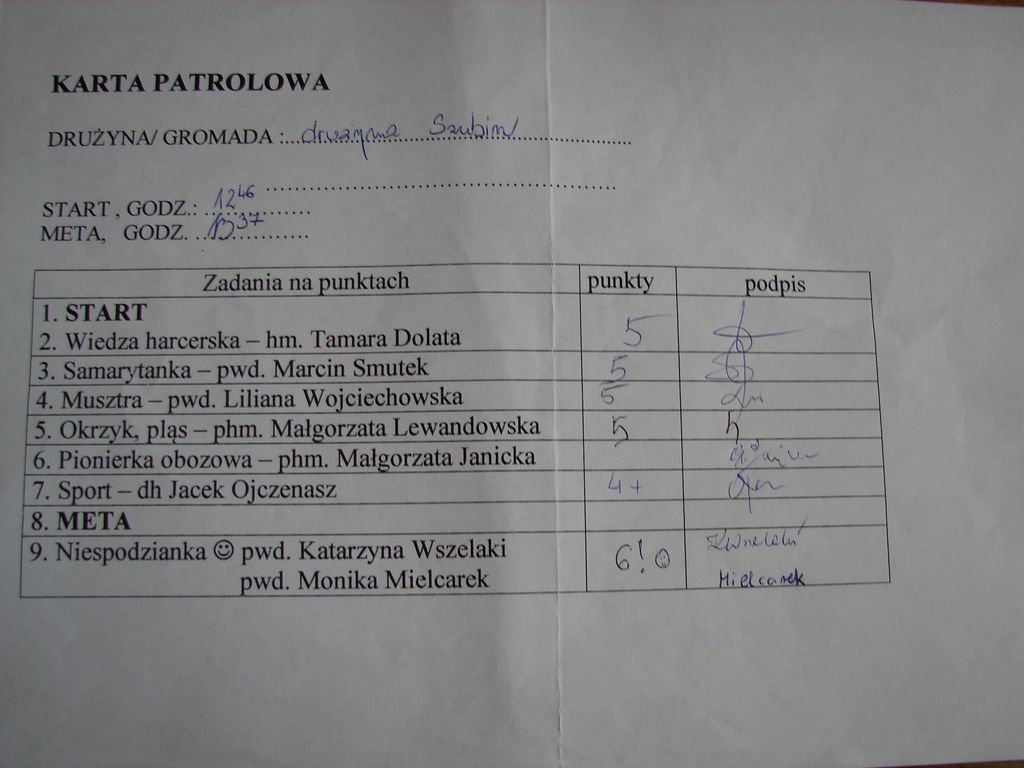 KARTA PATROLOWA
DRUŻYNA/ GROMADA :...drużyna Szubin
START , GODZ.: 12 46
META, GODZ. 13 37
Zadania na punktach punkty podpis
1. START
2. Wiedza harcerska – hm. Tamara Dolata 5
3. Samarytanka – pwd. Marcin Smutek 5
4. Musztra – pwd. Liliana Wojciechowska 5
5. Okrzyk, pląs – phm. Małgorzata Lewandowska 5
6. Pionierka obozowa – phm. Małgorzata Janicka
7. Sport – dh Jacek Ojczenasz 4+
8. META
9. Niespodzianka ☺ pwd. Katarzyna Wszelaki 6! ☺
pwd. Monika Mielcarek Mielcarek